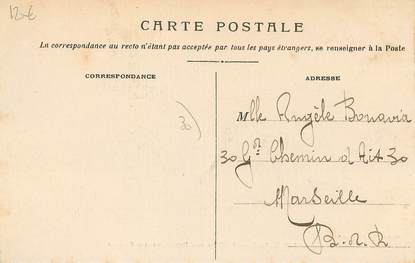 12€
CARTE POSTALE
La correspondance au recto n'étant pas acceptée par tous les pays étrangers, se renseigner à la Poste
CORRESPONDANCE
ADRESSE
30
Mlle Angèle Bonavia
30 Gd Chemin d'Aix 30
Marseille
B. d. R